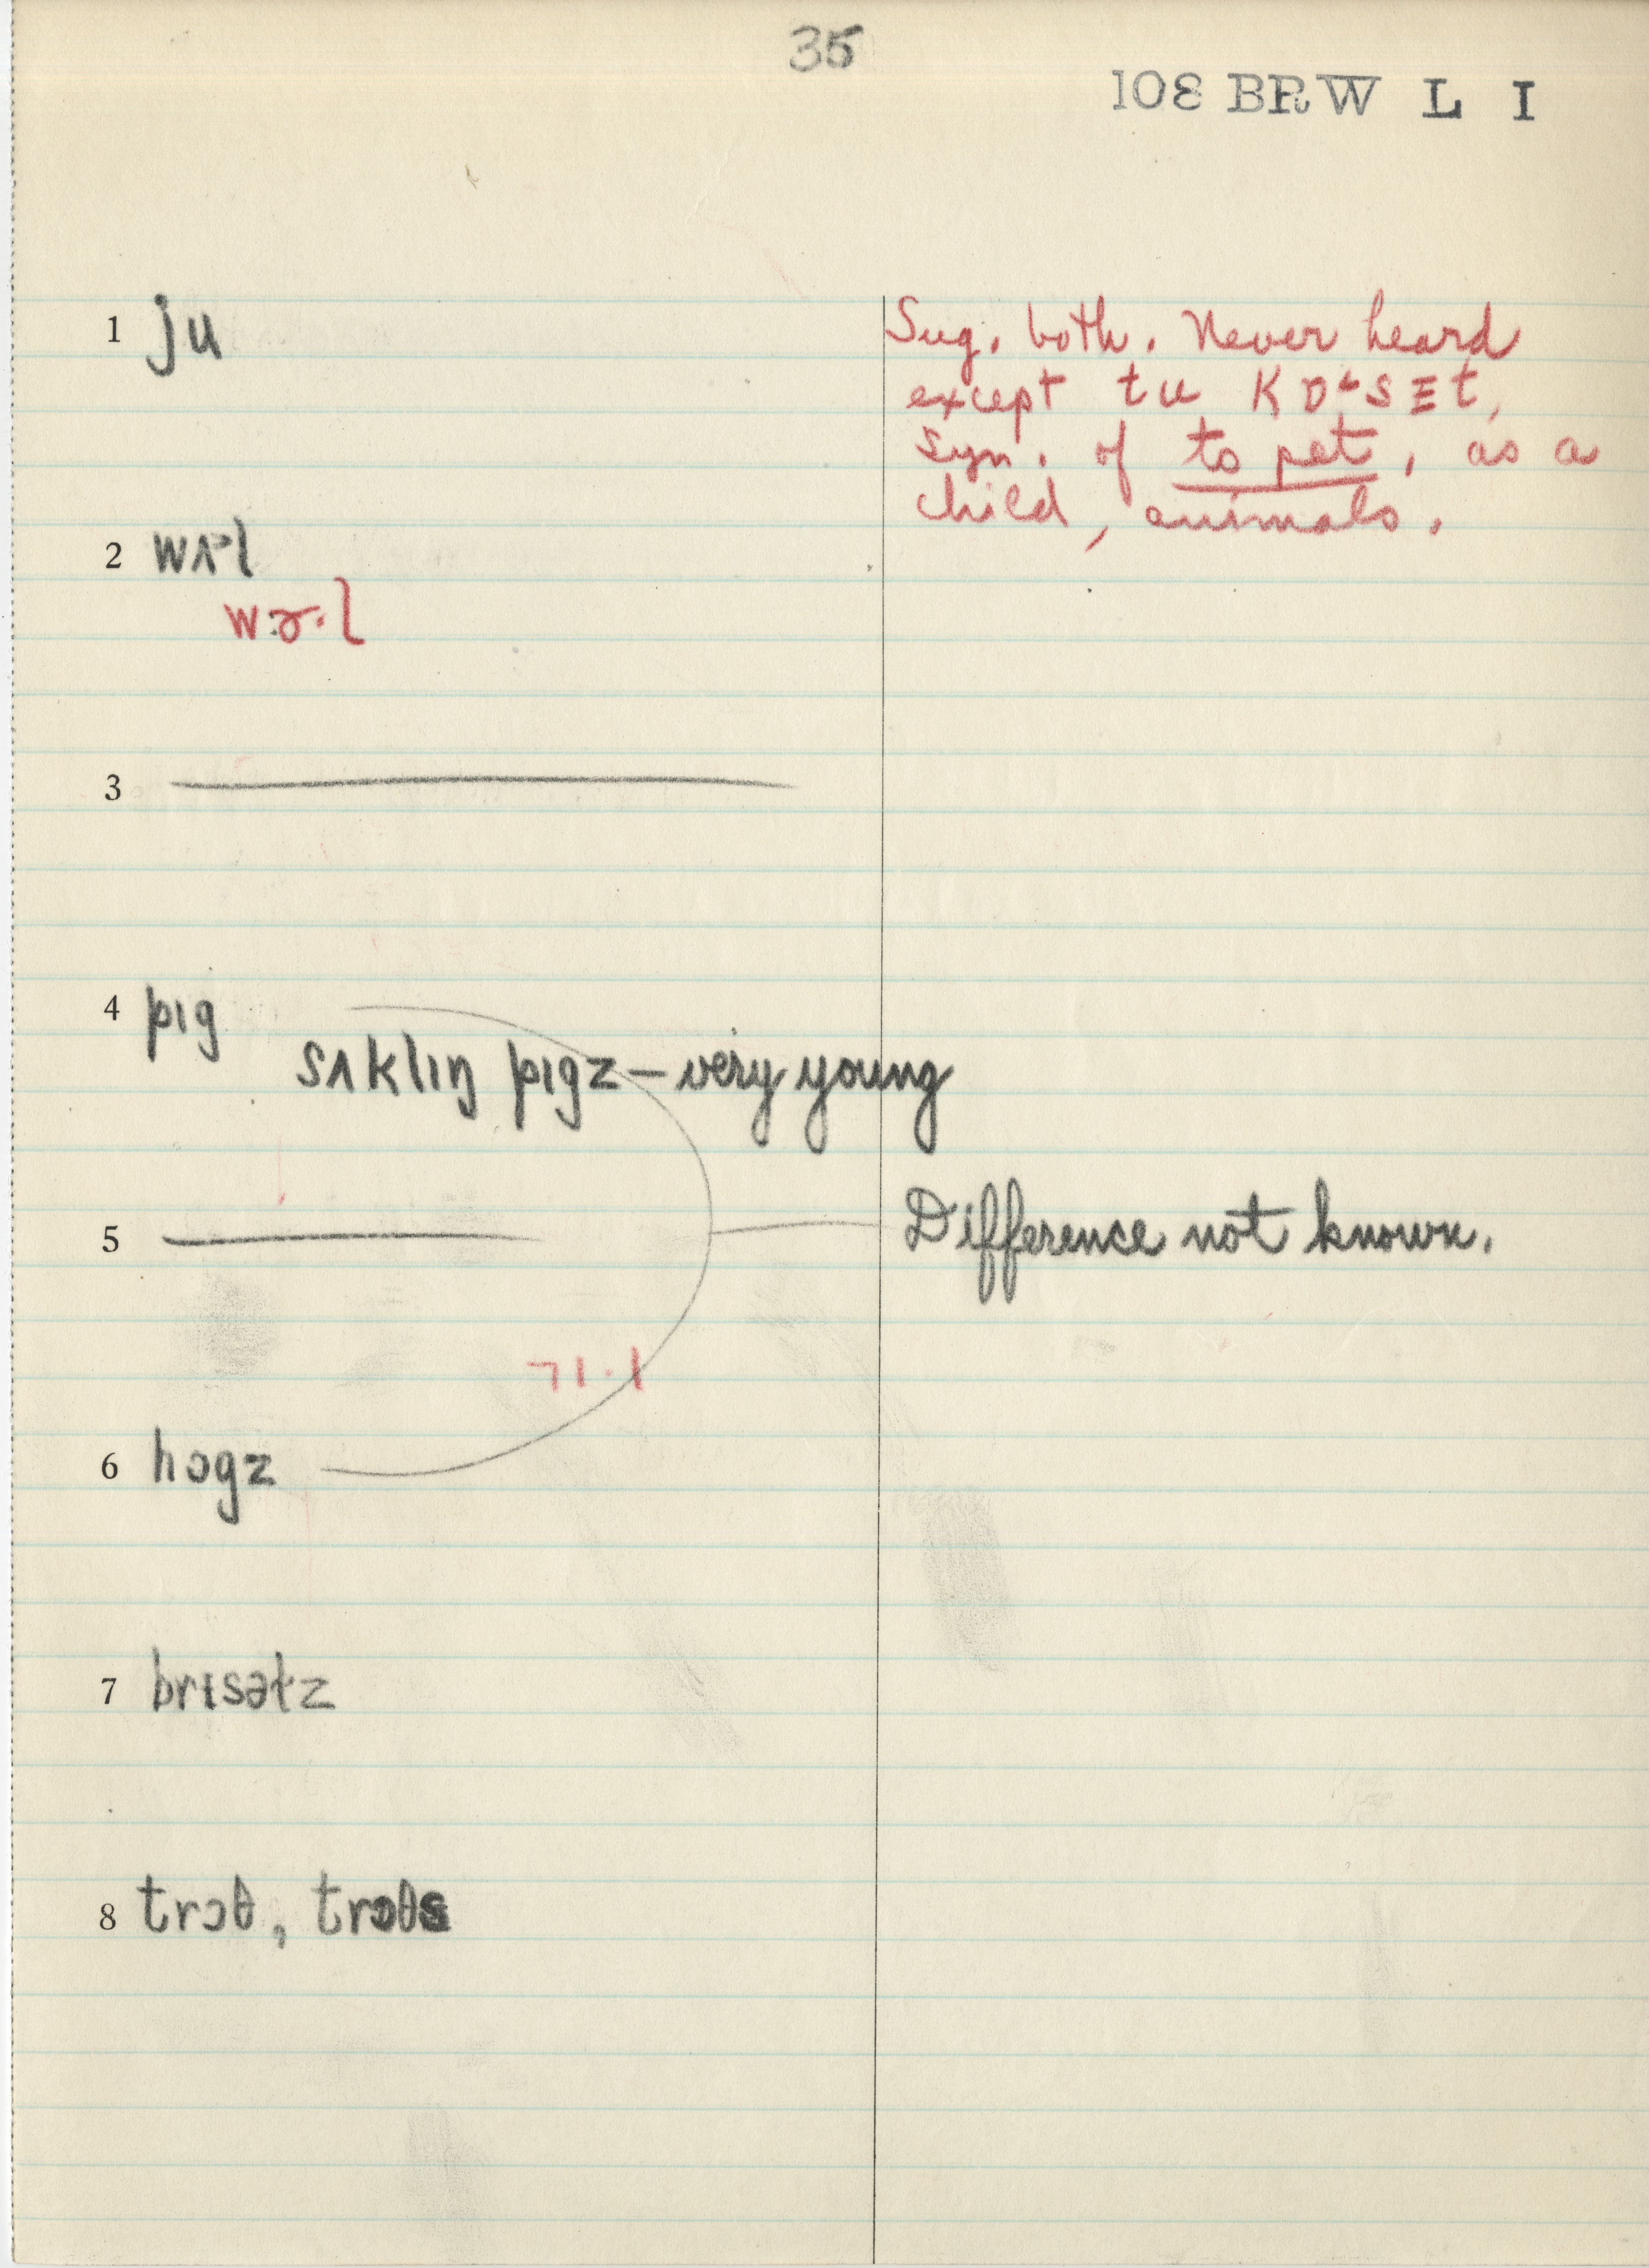 35
108 BRW L I
1 ju
Sug. both. Never heard
except tu kɒ˔sɛt,
syn. of to pet, as a
child, animals.
2 wʌ˞l
wɚ·l
3
4 pɪg
sʌklɪŋ pɪgz – very young
5
Difference not known.
6 hɔgz
7 brɪsəɫz
8 trɔθ, trɔθs